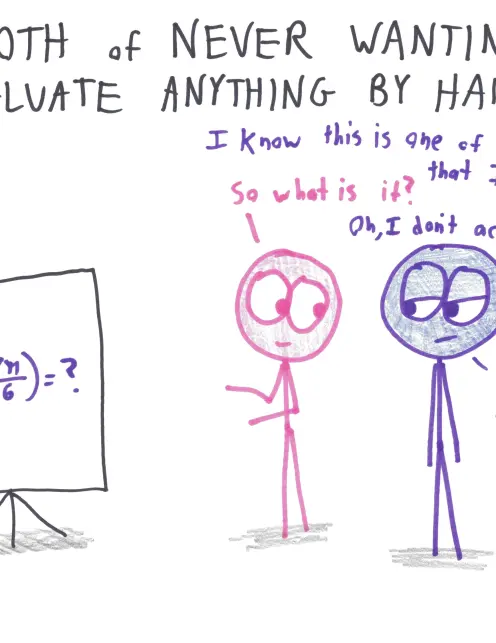 OTH of NEVER WANTIN
LUATE ANYTHING BY HA
I know this is one of
that
So what is it?
Oh, I don't ac
π/6) = ?